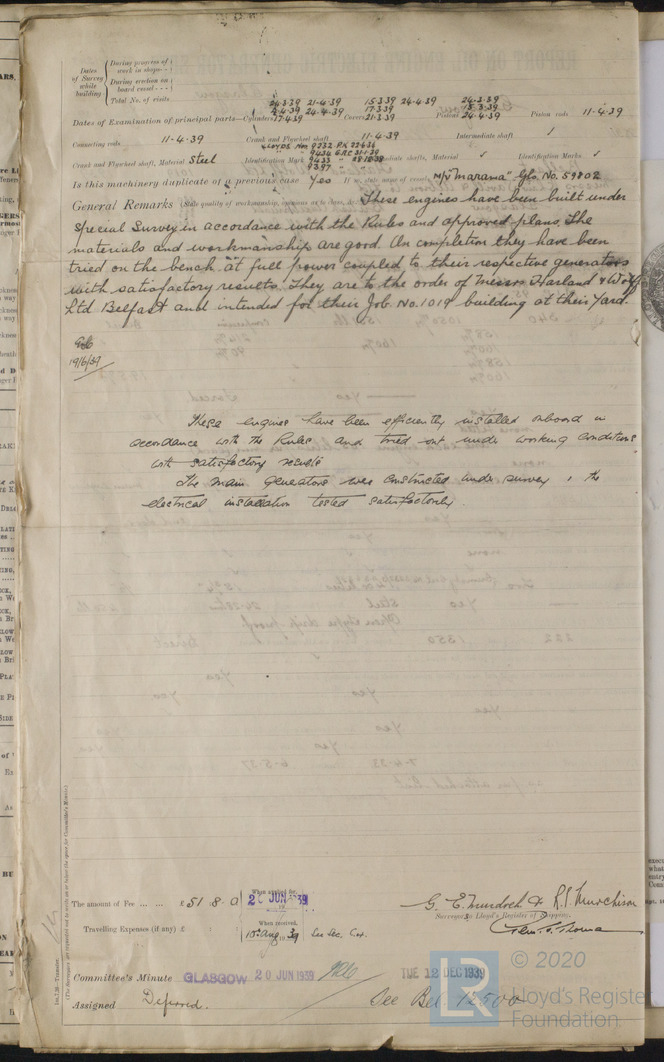 Dates of Survey while building
During progress of work in shops
During erection on board vessel
Total No. of visits
Dates of Examination of principal parts—Cylinders 24-3-39 21-4-39 4-4-39 24-4-39 17-4-39 Covers 15-3-39 24-4-39 17-3-39 21-3-39 Pistons 24-3-39 15-3-39 24-4-39 Piston rods 11-4-39
Connecting rods 11-4-39 Crank and Flywheel shaft 11-4-39 Intermediate shaft /
Crank and Flywheel shaft, Material Steel Identification Mark LLOYDS Nos 9232 9434 9433 9397 Intermediate shafts, Material ✓ Identification Marks ✓
Is this machinery duplicate of a previous case Yes If so, state name of vessel M/V "Marama" Gls. No. 59802
General Remarks (State quality of workmanship, These engines have been built under
Special Survey in accordance with the Rules and approved plans. The
materials and workmanship are good. On completion they have been
tried on the bench at full power coupled to their respective generators
with satisfactory results. They are to the order of Messrs Harland & Wolff
Ltd Belfast and intended for their Job No. 1019 building at their Yard.
19/6/39
These engines have been efficiently installed onboard in
accordance with the Rules and tried out under working conditions
with satisfactory results
The main generators were constructed under survey & the
electrical installation tested satisfactorily.
The amount of Fee ... ... £51 . 8 . 0 When applied for, 20 JUN 39
Travelling Expenses (if any) £ When received, 10 Aug 1939
G. E. Murdoch & R. S. Murchison
Surveyor to Lloyd's Register of Shipping.
Committee's Minute GLASGOW 20 JUN 1939 TUE 12 DEC 1939
Assigned Deferred. See Bel 12500
© 2020
LR
Lloyd's Register
Foundation